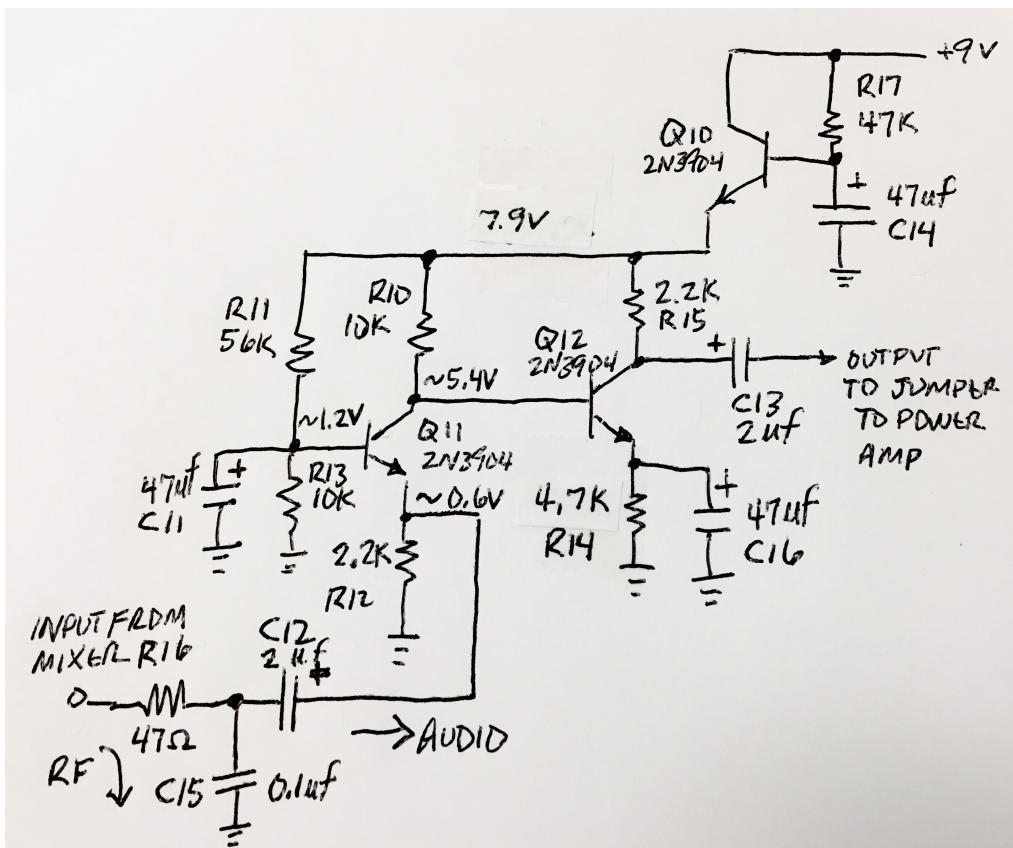 +9V
R17
47K
Q10
2N3904
+
47uf
C14
7.9V
R11
56K
R10
10K
2.2K
R15
Q12
2N3904
+
OUTPUT
TO JUMPER
TO POWER
AMP
C13
2uf
~5.4V
~1.2V
Q11
2N3904
47uf
C11
+
R13
10K
~0.6V
4.7K
R14
+
47uf
C16
2.2K
R12
INPUT FROM
MIXER R16
C12
2uf
+
47Ω
→ AUDIO
RF
C15
0.1uf